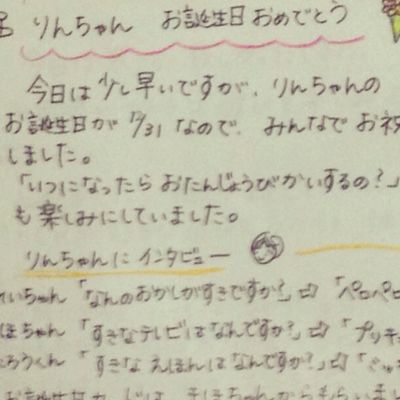 りんちゃん お誕生日おめでとう
今日は少し早いですが、りんちゃんの
お誕生日が 7/31 なので、みんなでお祝
しました。
「いつになったら おたんじょうびかいするの?」
も楽しみにしていました。
りんちゃんに インタビュー
いちゃん「なんのおかしがすきですか?」⇨「ペロペロ
ほちゃん「すきなテレビはなんですか?」⇨「プリキ
ろうくん「すきな えほんはなんですか?」⇨「